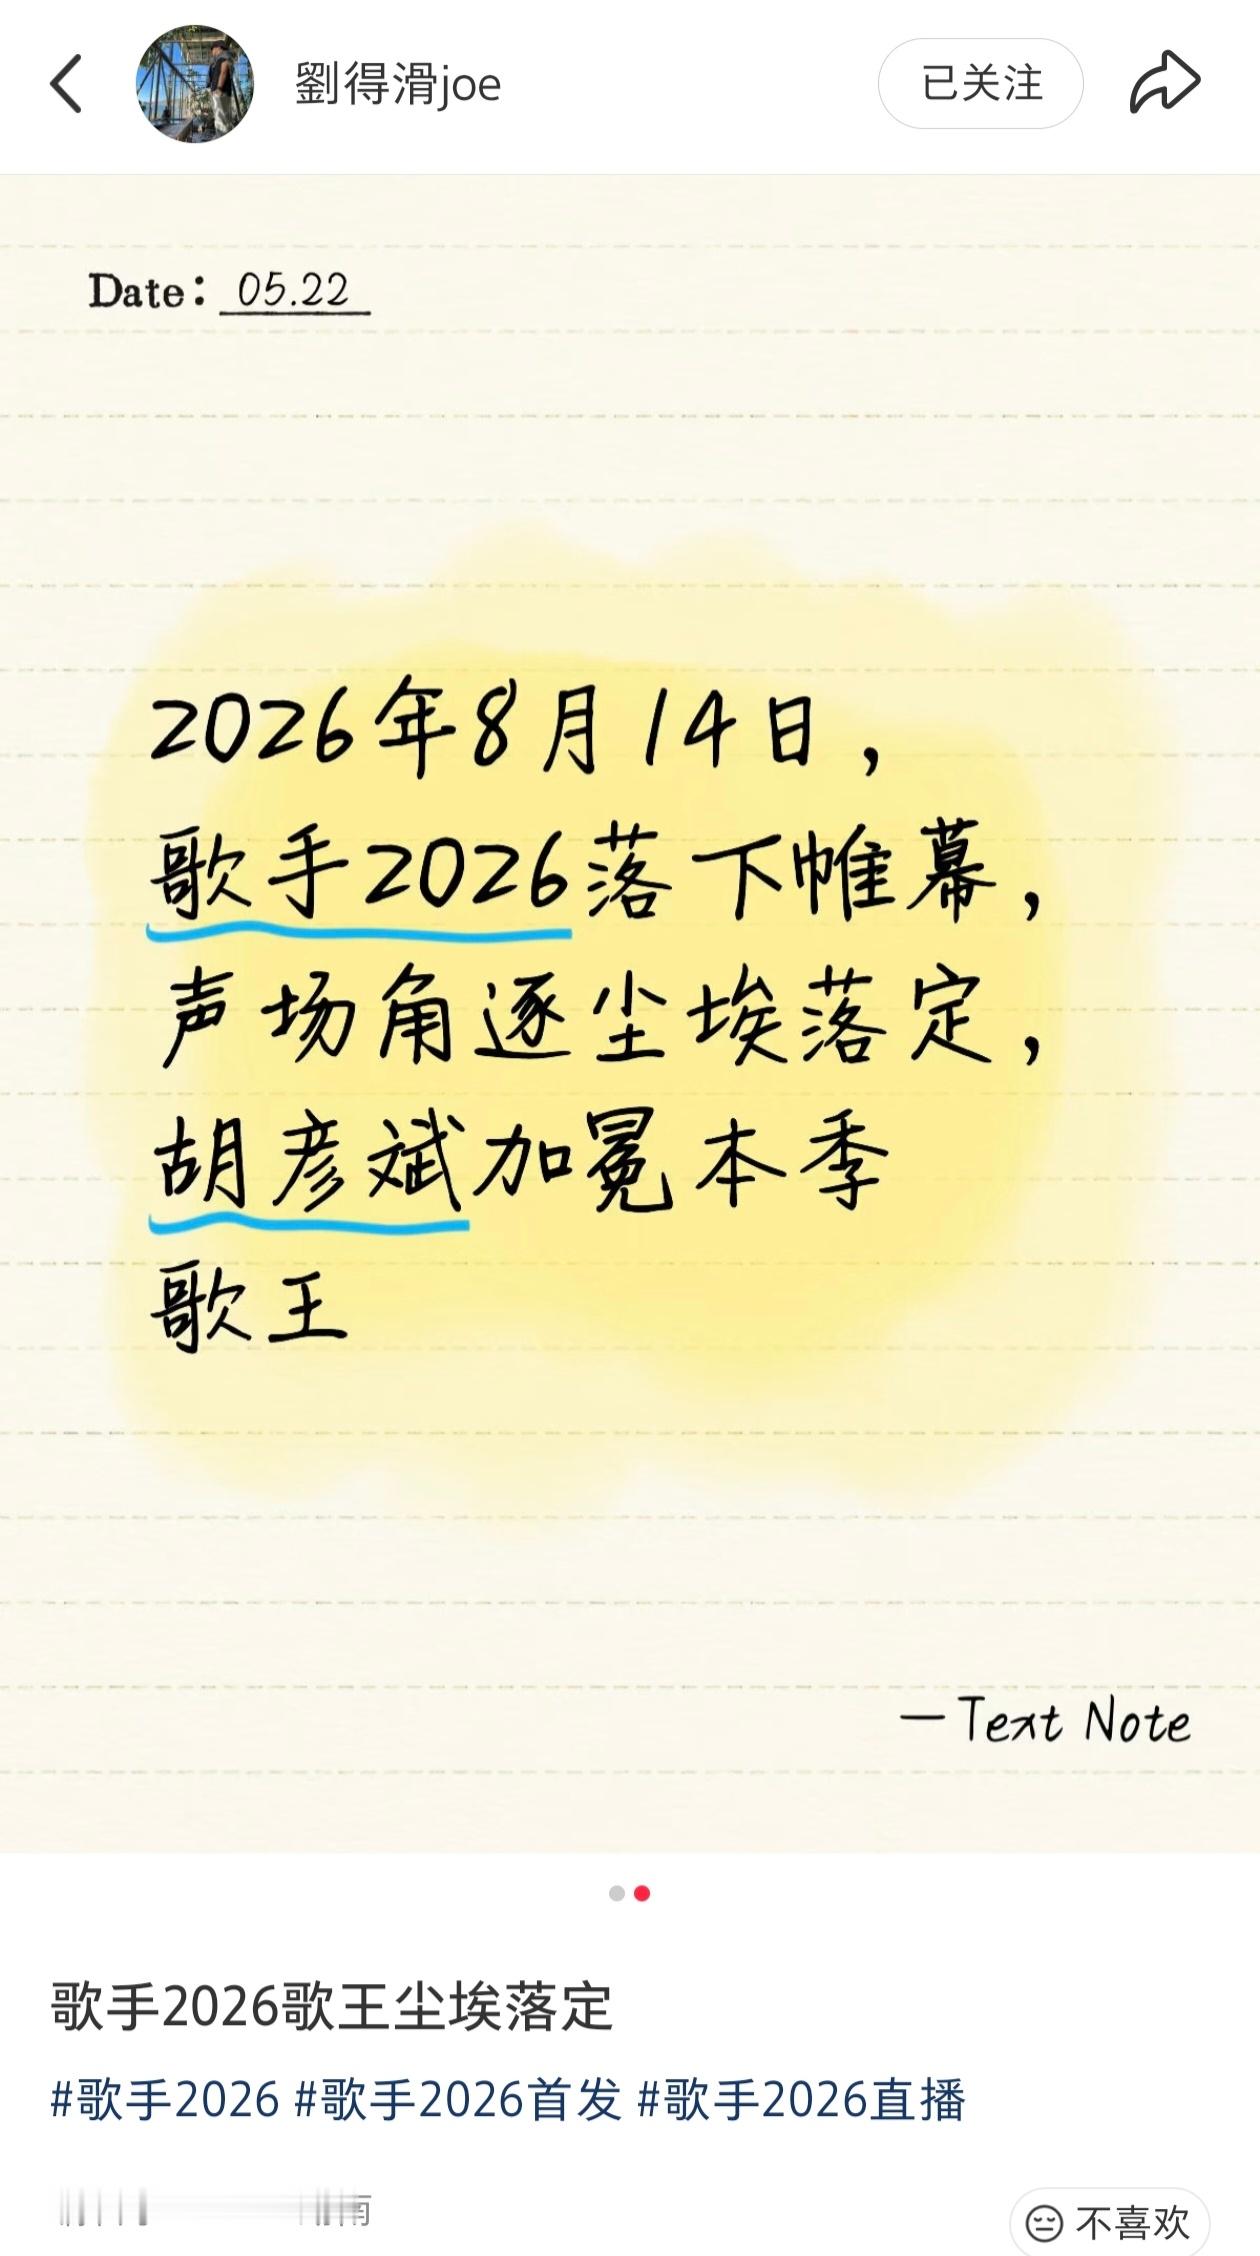 劉得滑joe
已关注
Date: 05.22
2026年8月14日，
歌手2026落下帷幕，
声场角逐尘埃落定，
胡彦斌加冕本季
歌王
—Text Note
歌手2026歌王尘埃落定
#歌手2026 #歌手2026首发 #歌手2026直播
南
不喜欢